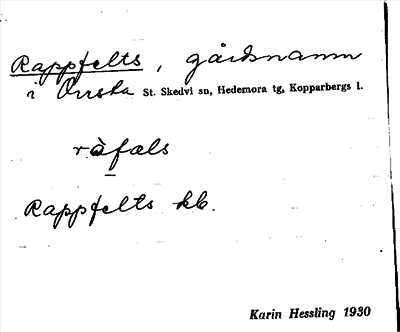 Rappfelts, gårdsnamn
i Orrsta St. Skedvi sn, Hedemora tg, Kopparbergs l.
ràfals
Rappfelts kb.
Karin Hessling 1930